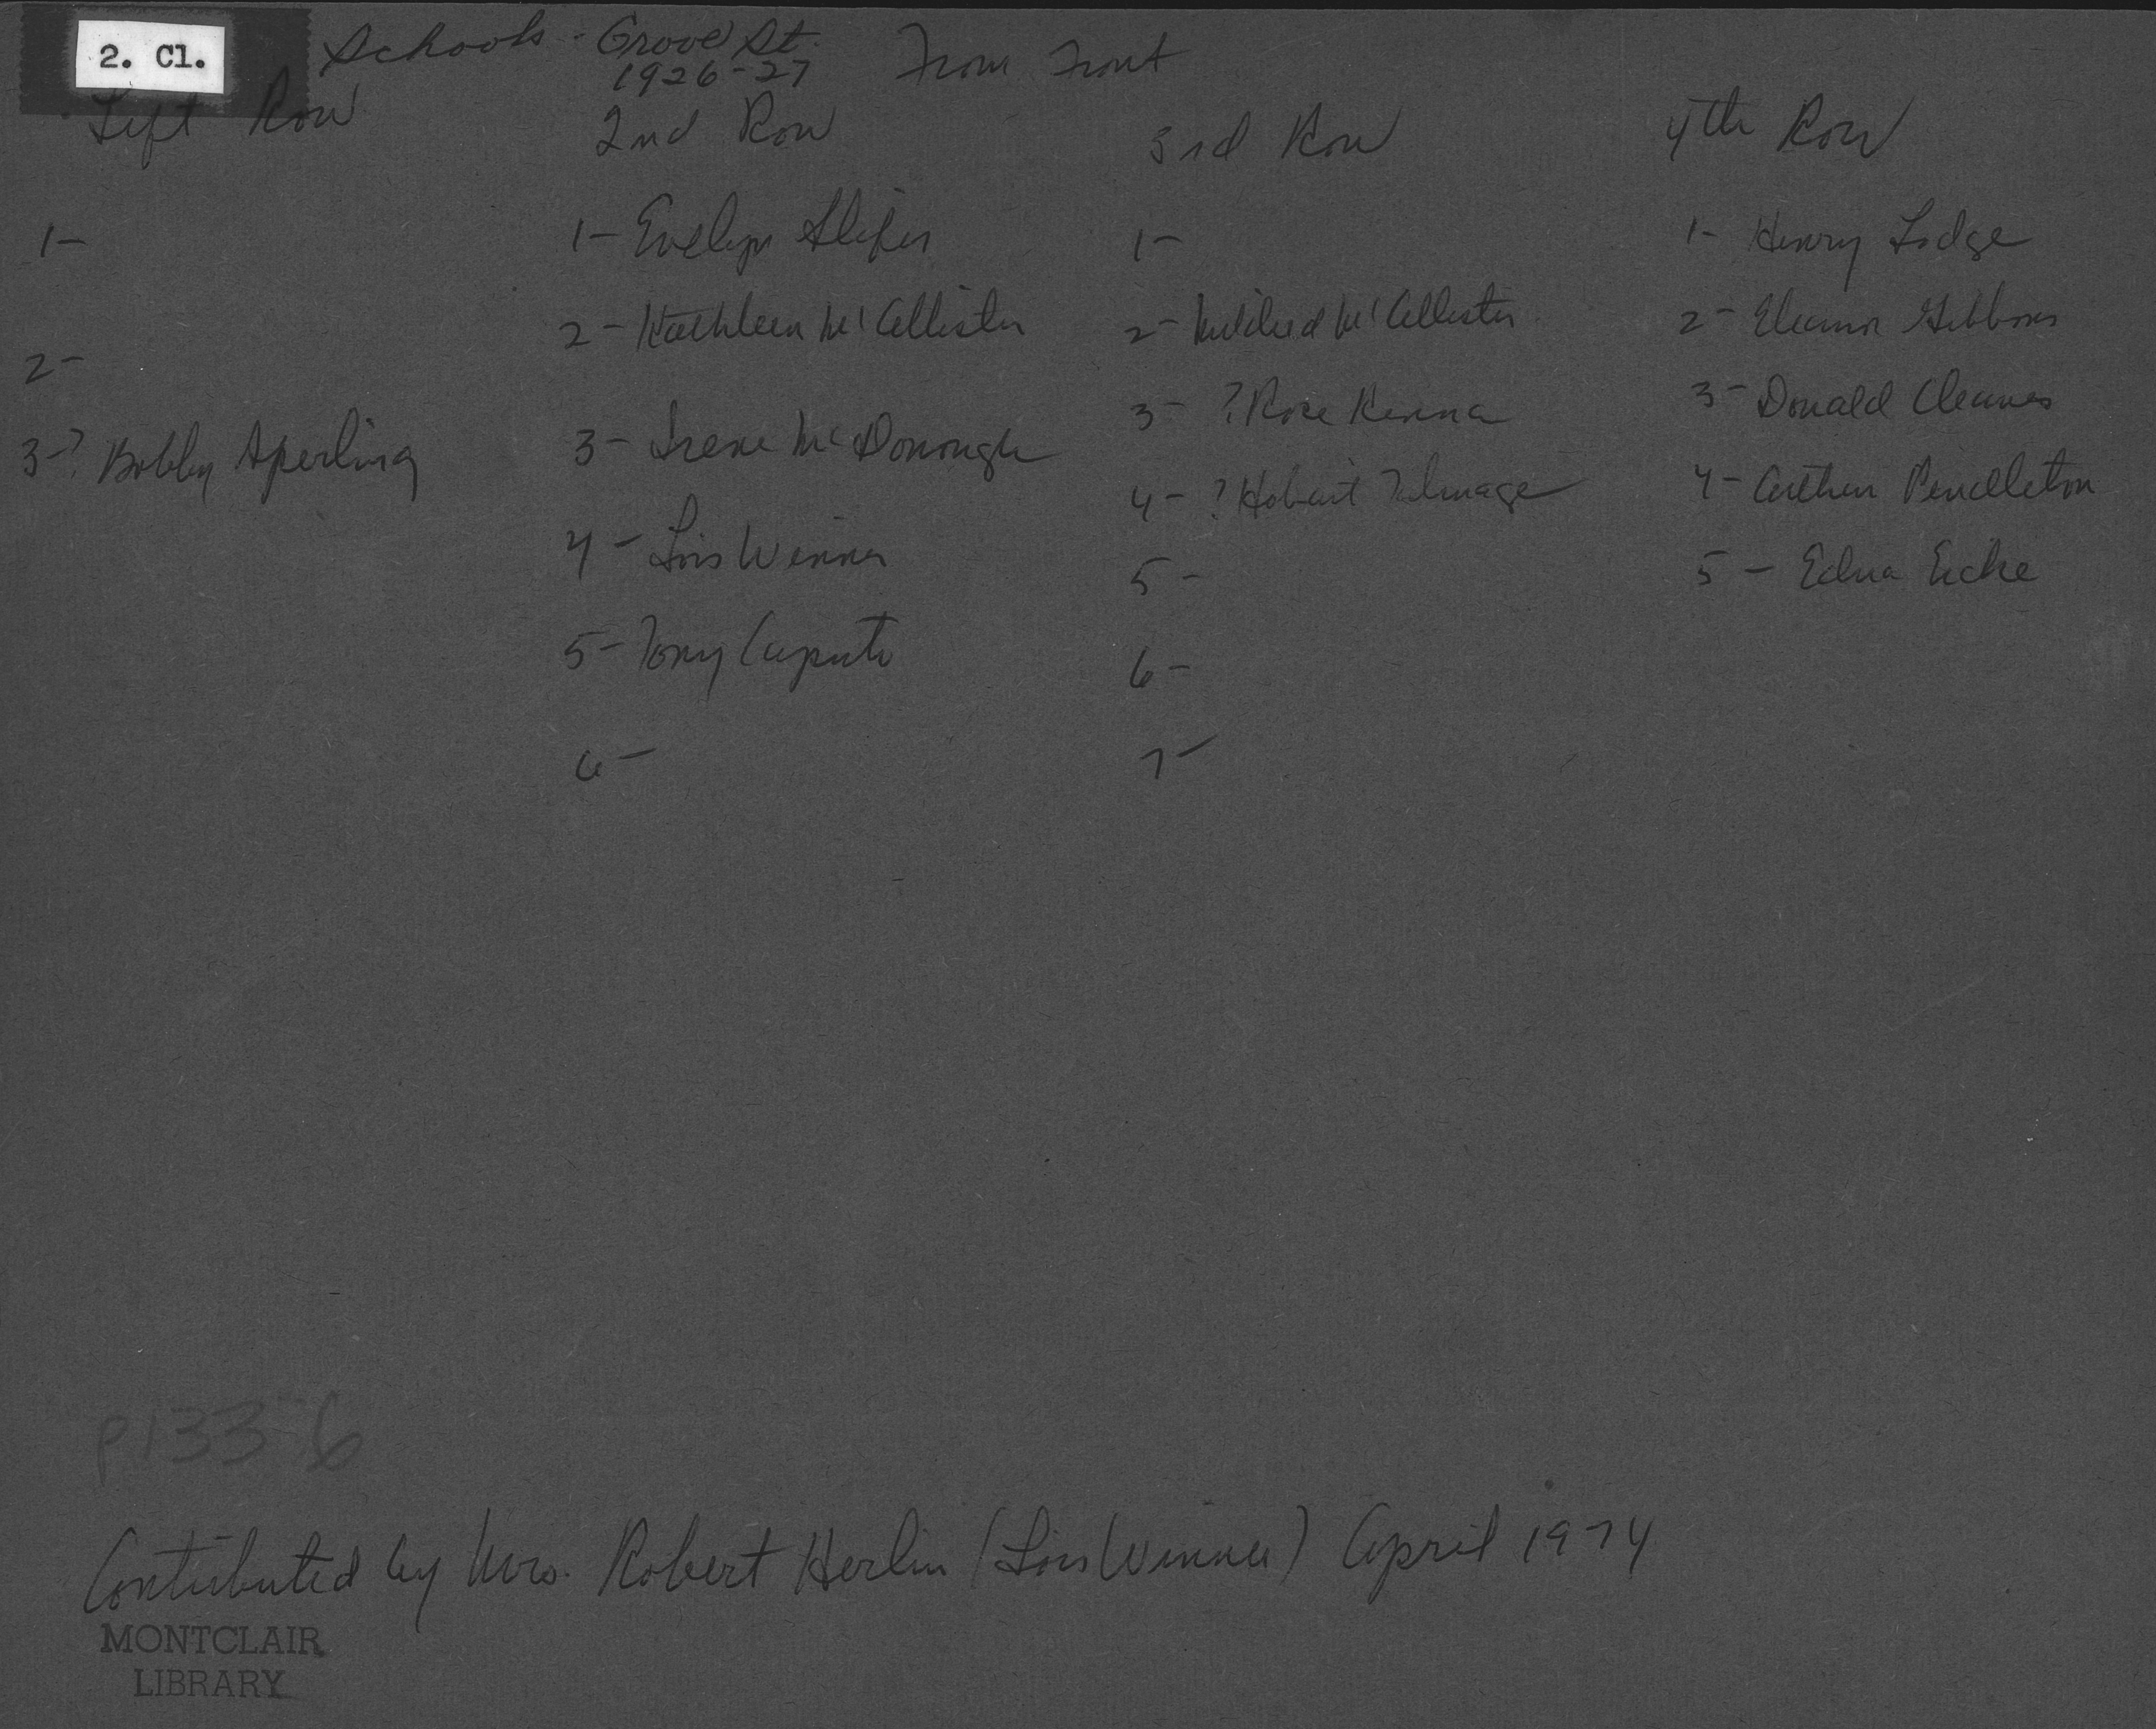 2. Cl.
Schools - Grove St.
1926-27
From Front
Left Row
1-
2-
3-? Bobby Sperling
2nd Row
1- Evelyn Slifer
2- Kathleen McCallister
3- Irene McDonough
4- Lois Winner
5- Tony Caputo
6-
3rd Row
1-
2- Mildred McCallister
3- ? Rose Kenna
4- ? Hobart Talmage
5-
6-
7-
4th Row
1- Henry Lodge
2- Eleanor Gibbons
3- Donald Cleaves
4- Arthur Pendleton
5- Edna Eicke
p133-6
Contributed by Mrs. Robert Herlin (Lois Winner) April 1974
MONTCLAIR
LIBRARY